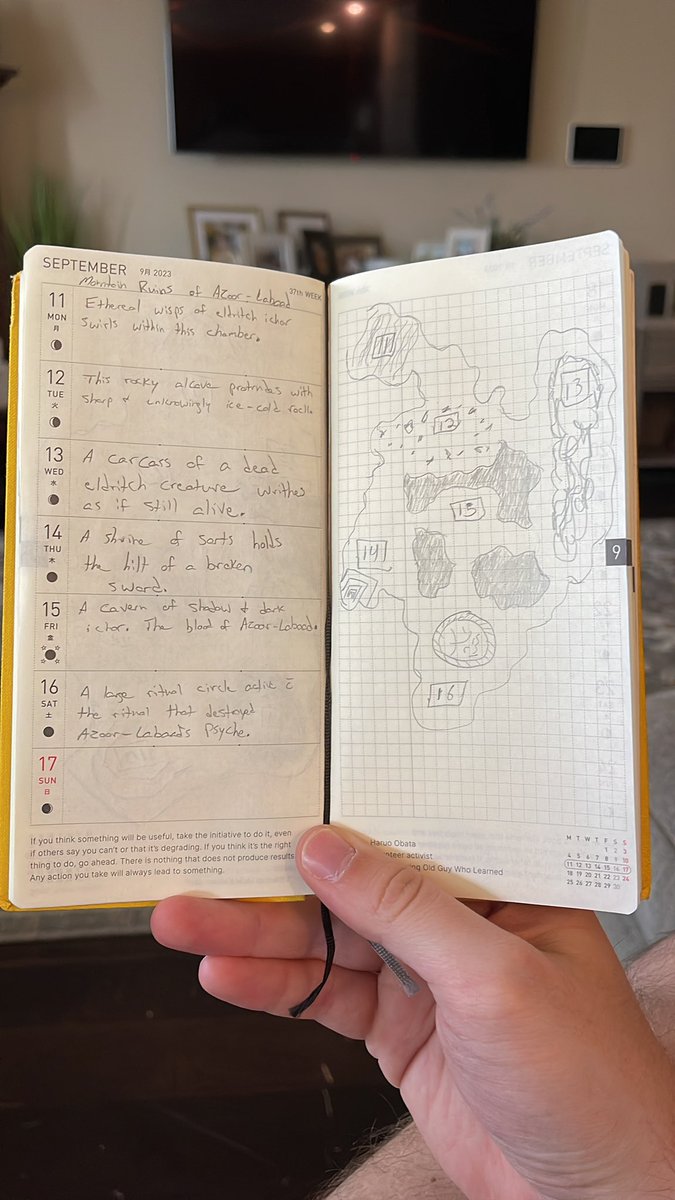 SEPTEMBER 9月 2023
37th WEEK
Mountain Ruins of Azoor-Labaad
11
MON
月
Ethereal wisps of eldritch ichor
swirls within this chamber.
12
TUE
火
This rocky alcove protrudes with
sharp & unknowingly ice-cold rocks
13
WED
水
A carcass of a dead
eldritch creature writhes
as if still alive.
14
THU
木
A shrine of sorts holds
the hilt of a broken
sword.
15
FRI
金
A cavern of shadow & dark
ichor. The blood of Azoor-Labaad.
16
SAT
土
A large ritual circle active c̄
the ritual that destroyed
Azoor-Labaad's Psyche.
17
SUN
日
If you think something will be useful, take the initiative to do it, even
if others say you can't or that it's degrading. If you think it's the right
thing to do, go ahead. There is nothing that does not produce results
Any action you take will always lead to something.
11
13
12
15
14
16
9
Haruo Obata
activist
Old Guy Who Learned
M T W T F S S
1 2 3
4 5 6 7 8 9 10
11 12 13 14 15 16 17
18 19 20 21 22 23 24
25 26 27 28 29 30